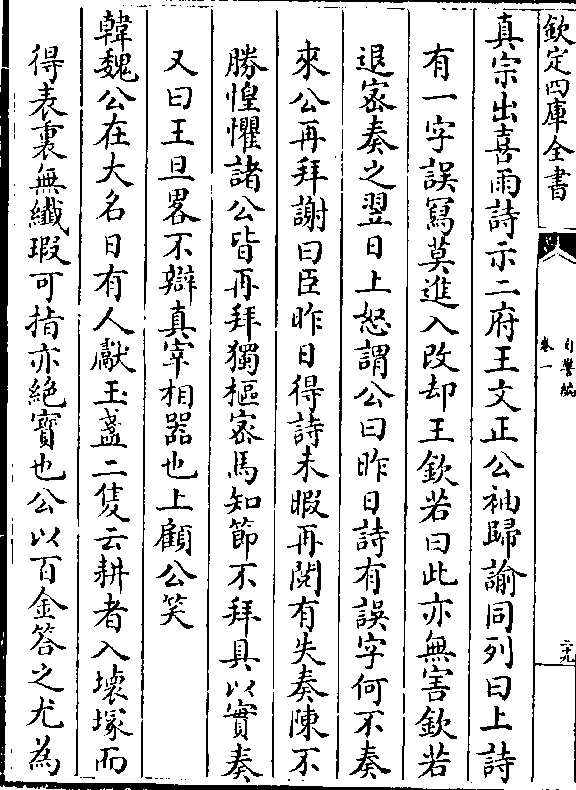 欽定四庫全書
自警編
卷一
二十九
真宗出喜雨詩示二府王文正公袖歸諭同列曰上詩
有一字誤寫莫進入改却王欽若曰此亦無害欽若
退宻奏之翌日上怒謂公曰昨日詩有誤字何不奏
來公再拜謝曰臣昨日得詩未暇再閱有失奏陳不
勝惶懼諸公皆再拜獨樞宻馬知節不拜具以實奏
又曰王旦畧不辯真宰相器也上顧公笑
韓魏公在大名日有人獻玉盞二隻云耕者入壞塚而
得表裏無纖瑕可指亦絶寳也公以百金答之尤為